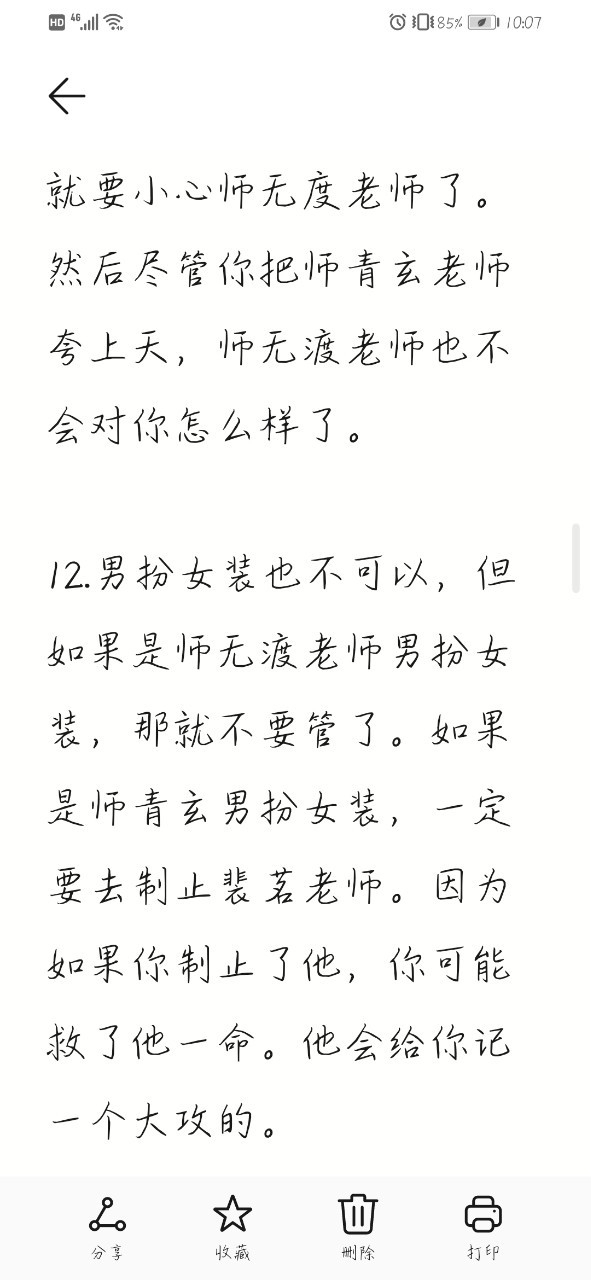 HD 4G 85% 10:07
就要小心师无度老师了。
然后尽管你把师青玄老师
夸上天，师无渡老师也不
会对你怎么样了。
12.男扮女装也不可以，但
如果是师无渡老师男扮女
装，那就不要管了。如果
是师青玄男扮女装，一定
要去制止裴茗老师。因为
如果你制止了他，你可能
救了他一命。他会给你记
一个大攻的。
分享 收藏 删除 打印